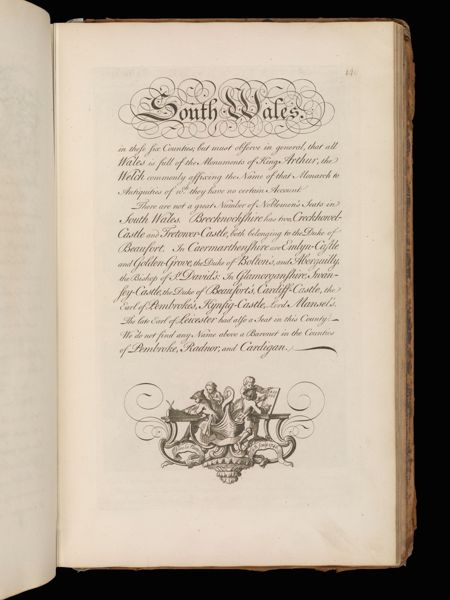 South Wales.
in these six Counties; but must observe in general, that all
Wales is full of the Monuments of King Arthur, the
Welch commonly affixing the Name of that Monarch to
Antiquities of wch. they have no certain Account.
There are not a great Number of Noblemen's Seats in
South Wales. Brecknockshire has two, Creckhowel-
Castle and Tretower-Castle, both belonging to the Duke of
Beaufort. In Caermarthenshire are Emlyn-Castle
and Golden-Grove, the Duke of Bolton's, and Aberguilly,
the Bishop of St. David's: In Glamorganshire, Swan-
sey-Castle, the Duke of Beaufort's, Cardiff-Castle, the
Earl of Pembroke's, Kynfig-Castle, Lord Mansel's.
The late Earl of Leicester had also a Seat in this County:
We do not find any Name above a Baronet in the Counties
of Pembroke, Radnor, and Cardigan.